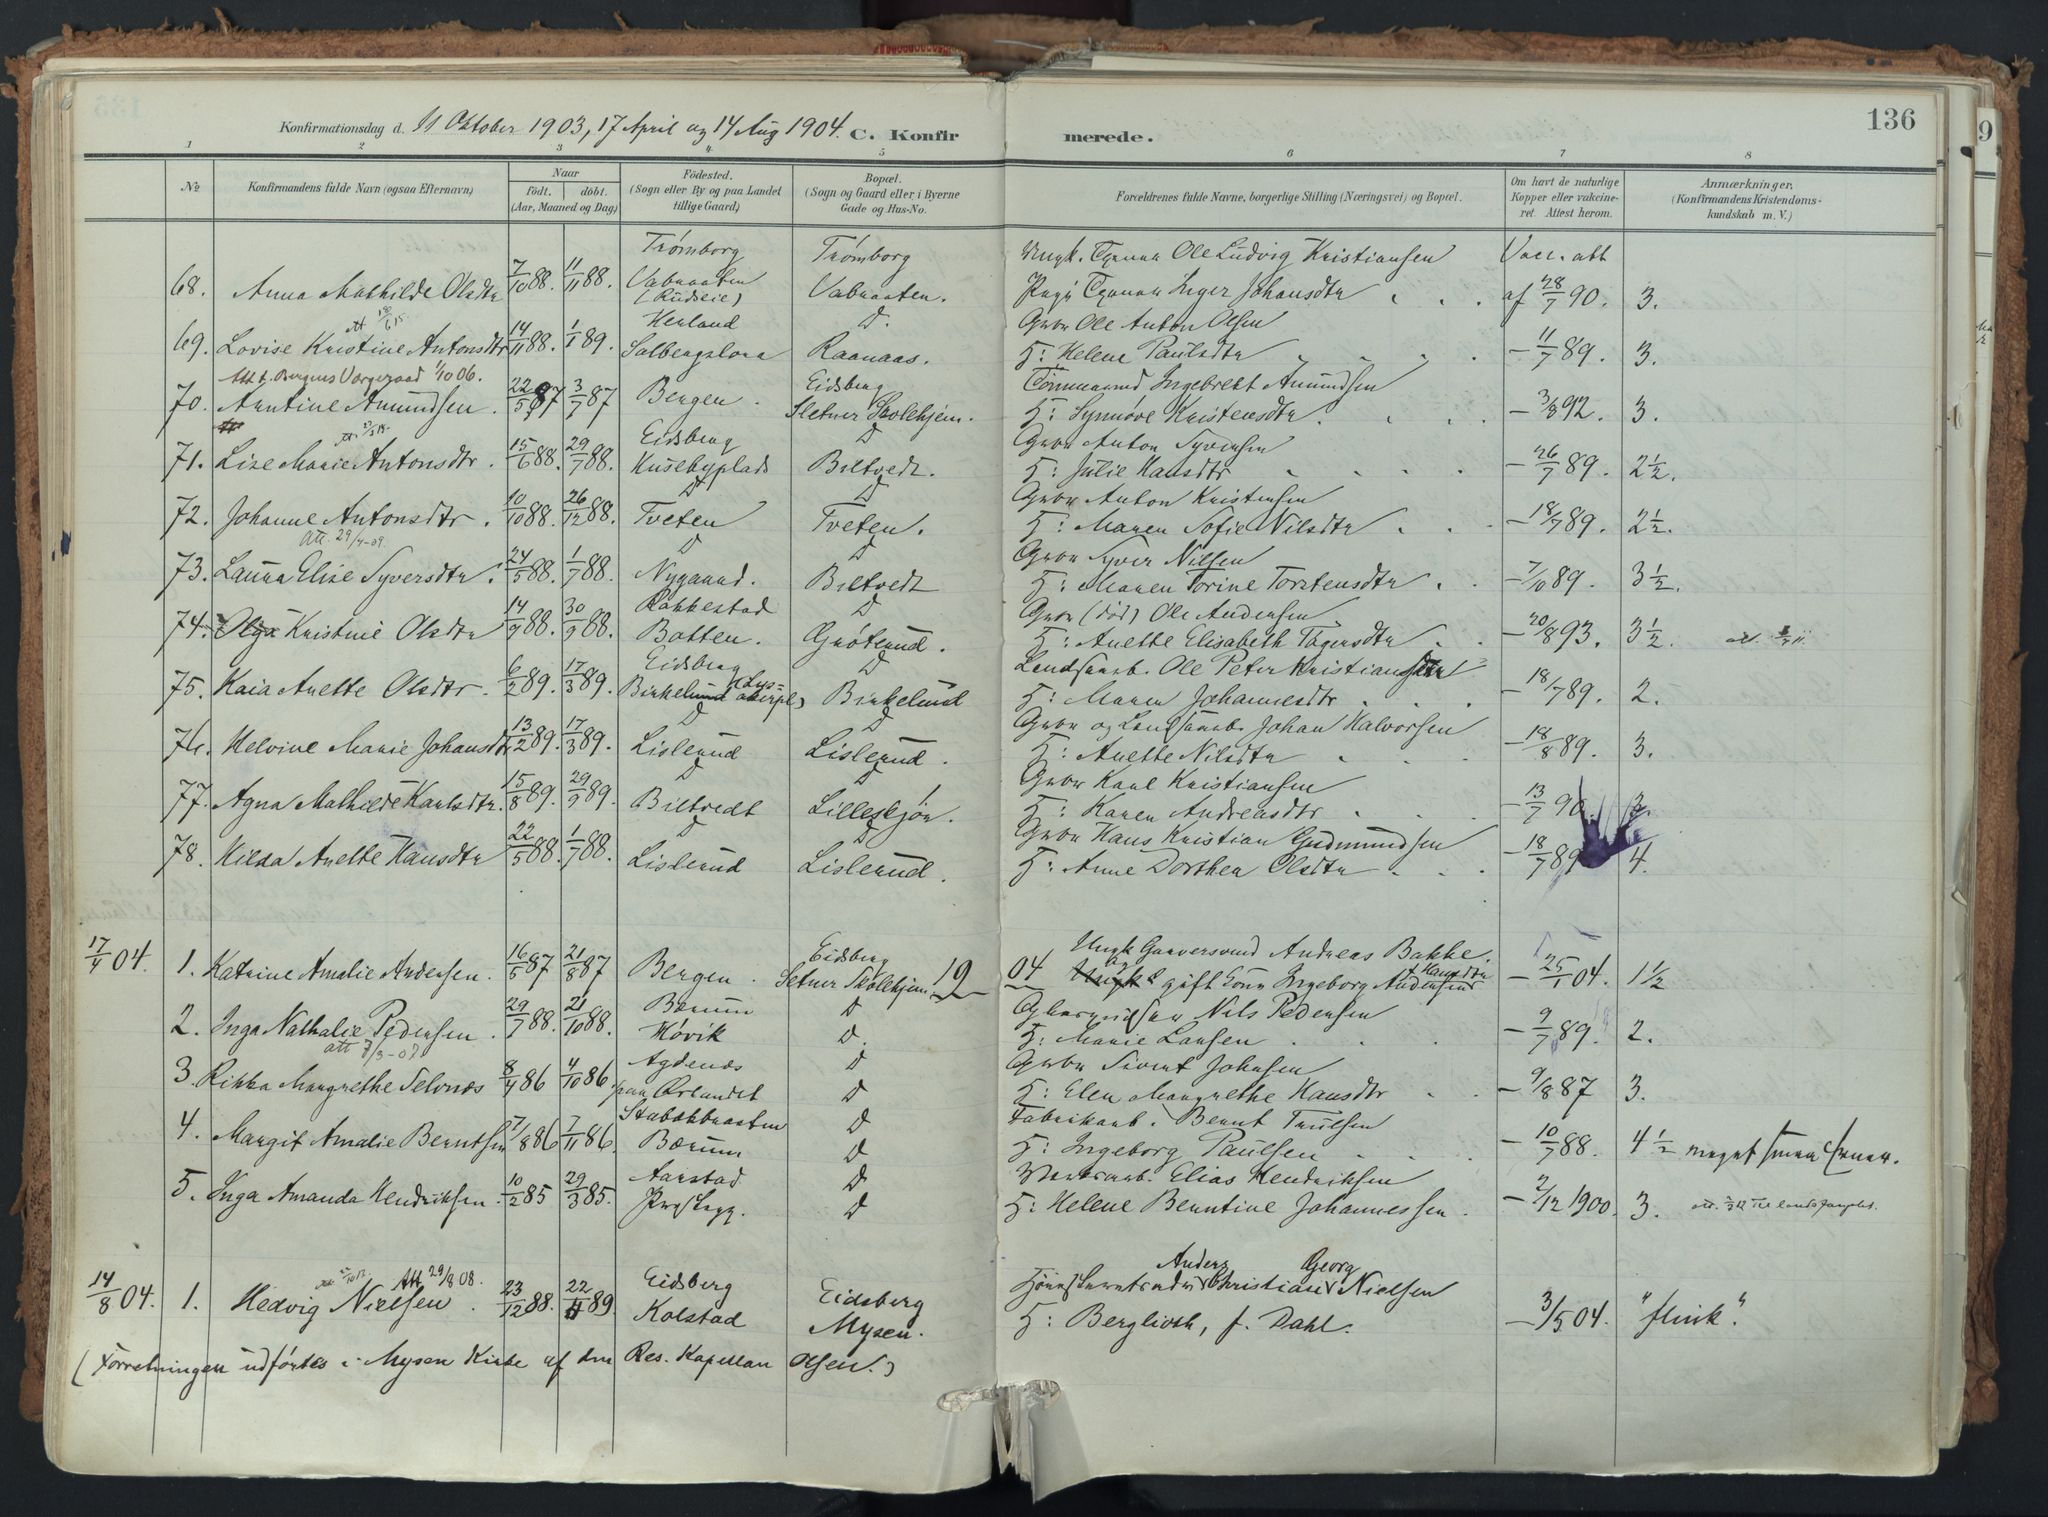 136
Konfirmationsdag d. 11 Oktober 1903, 17 April og 14 Aug 1904. C. Konfirmerede.
1 2 3 4 5 6 7 8
No Konfirmandens fulde Navn (ogsaa Efternavn) Naar født. døbt. (Aar, Maaned og Dag) Fødested. (Sogn eller By og paa Landet tillige Gaard) Bopæl. (Sogn og Gaard eller i Byerne Gade og Hus-No. Forældrenes fulde Navne, borgerlige Stilling (Næringsvei) og Bopæl. Om havt de naturlige Kopper eller vaccineret. Attest herom. Anmærkninger. (Konfirmandens Kristendomskundskab m. V.)
Trømborg Trømborg Ungk. Ole Ludvig Kristiansen Vacc. att
68. Anna Mathilde Olsdtr 7/10 88. 11/11 88. (Rudseie) Johansdtr af 28/7 90. 3.
Herland D. Gbr Ole Anton Olsen
69. Lovise Kristine Antonsdtr 14/11 88. 1/1 89. Solbergslora Raanaas. H: Helene Paulsdtr - 11/7 89. 3.
Att f. Bergens Vergeraad 1/10 06. Eidsberg Ingebrekt Amundsen
70. Antine Amundsen. 22/5 87 3/7 87 Bergen. Sletner Skolehjem. H: Synnøve Kristensdtr. - 3/8 92. 3.
Eidsberg D Gbr Anton Syversen
71. Lise Marie Antonsdtr. 15/6 88. 29/7 88. Kusebyplads Biltvedt. H: Julie Hansdtr - 26/7 89. 2 1/2.
D D Gbr Anton Kristensen
72. Johanne Antonsdtr. 10/10 88. 26/12 88. Tveten Tveten. H: Maren Sofie Nilsdtr - 18/7 89. 2 1/2.
Att. 29/4-09. D D Gbr Syver Nilsen
73. Laura Elise Syversdtr. 24/5 88. 1/7 88. Nygaard. Biltvedt H: Maren Torine Torstensdtr - 7/10 89. 3 1/2.
Rakkestad D Gbr (død) Ole Andersen
74. Olga Kristine Olsdtr 14/9 88. 30/9 88. Botten. Grøterud. H: Anette Elisabeth - 20/8 93. 3 1/2.
Eidsberg D Ole Peter Kristiansen
75. Kaia Anette Olsdtr. 6/2 89. 17/3 89. Birkelund Birkelund H: Maren Johannesdtr - 18/7 89. 2.
D D Gbr og Johan Halvorsen
76. Helvine Marie Johansdtr 13/2 89. 17/3 89. Lislerud Lislerud. H: Anette Nilsdtr - 18/8 89. 3.
D D Gbr Karl Kristiansen
77. Agna Mathilde Karlsdtr. 15/8 89. 29/9 89. Biltvedt Lilleskjøn. H: Karen Andreasdtr - 13/7 90.
D D Gbr Hans Kristian Gudmundsen
78. Hilda Anette Hansdtr 22/5 88. 1/7 88. Lislerud Lislerud. H: Anne Dorthea Olsdtr - 18/7 89 4.
Eidsberg Ungk Andreas Bakke.
17/4 04. 1. Katrine Amalie Andersen. 16/5 87 21/8 87 Bergen. Setner Skolehjem. 19 04 gift Ingeborg Hansdtr - 25/1 04. 1 1/2
Bærum D Nils Pedersen
2. Inga Nathalie Pedersen. 29/7 88. 21/10 88. Høvik D. H: Marie Larsen - 9/7 89. 2.
Agdenes D Gbr Sivert Johnsen
3. Rikka Margrethe Selvnæs 8/4 86 4/10 86 D H: Elen Margrethe Hansdtr - 9/8 87 3.
D Fabrikarb. Bernt Trulsen
4. Margit Amalie Berntsen 7/8 86 7/11 86. Bærum D H: Ingeborg Paulsen - 10/7 88. 4 1/2 meget
Aarstad D Elias Hendriksen
5. Inga Amanda Hendriksen. 10/2 85 29/3 85. D H: Helene Berntine Johannessen. - 2/12 1900. 3.
Att 29/8 08. Eidsberg Anders Georg
14/8 04. 1. Hedvig Nielsen. 23/12 88. 22/4 89 Kolstad Eidsberg Christian Nielsen
Mysen. H: Berglioth, f. Dahl. - 3/5 04. "flink".
(Forretningen udførtes i Mysen Kirke af den Res. Kapellan Olsen.)